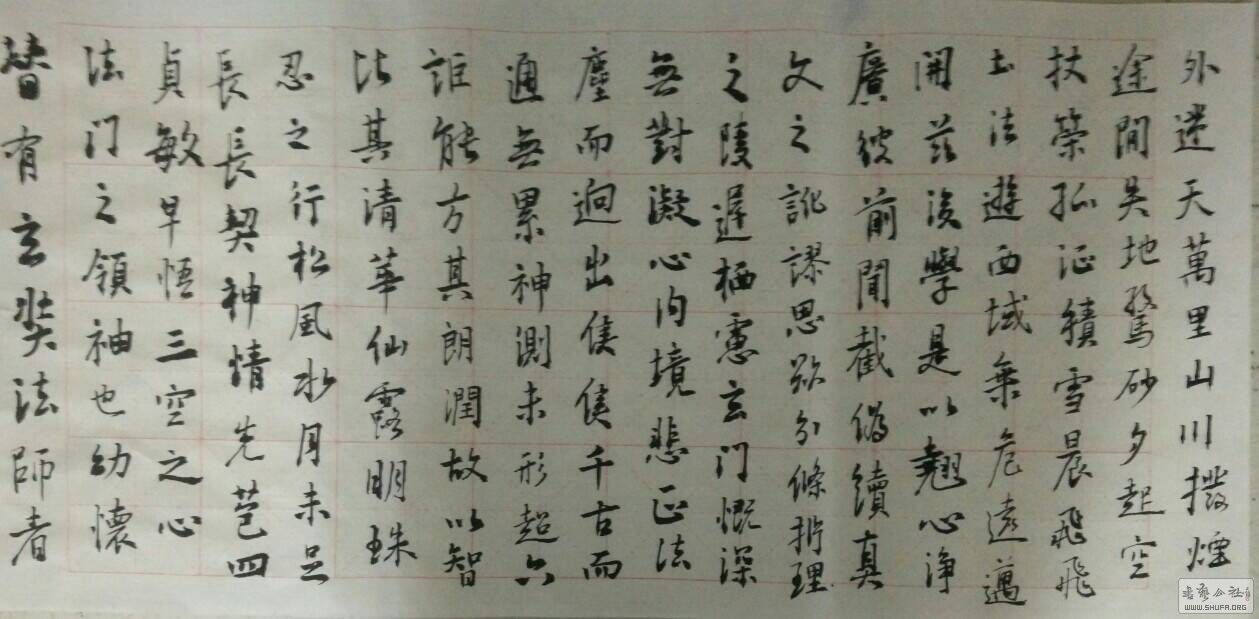 替有玄奘法師者
法门之領袖也幼懷
貞敏早悟三空之心
長長契神情先苞四
忍之行松風水月未足
比其清華仙露明珠
詎能方其朗潤故以智
通無累神測未形超六
塵而迥出隻隻千古而
無對凝心內境悲正法
之陵遲栖慮玄门慨深
文之訛謬思欲分條析理
廣彼前聞截偽續真
開茲後學是以翹心淨
土法遊西域乘危遠邁
杖策孤征積雪晨飛飛
途間失地驚砂夕起空
外迷天萬里山川撥煙
WWW.SHUFA.ORG